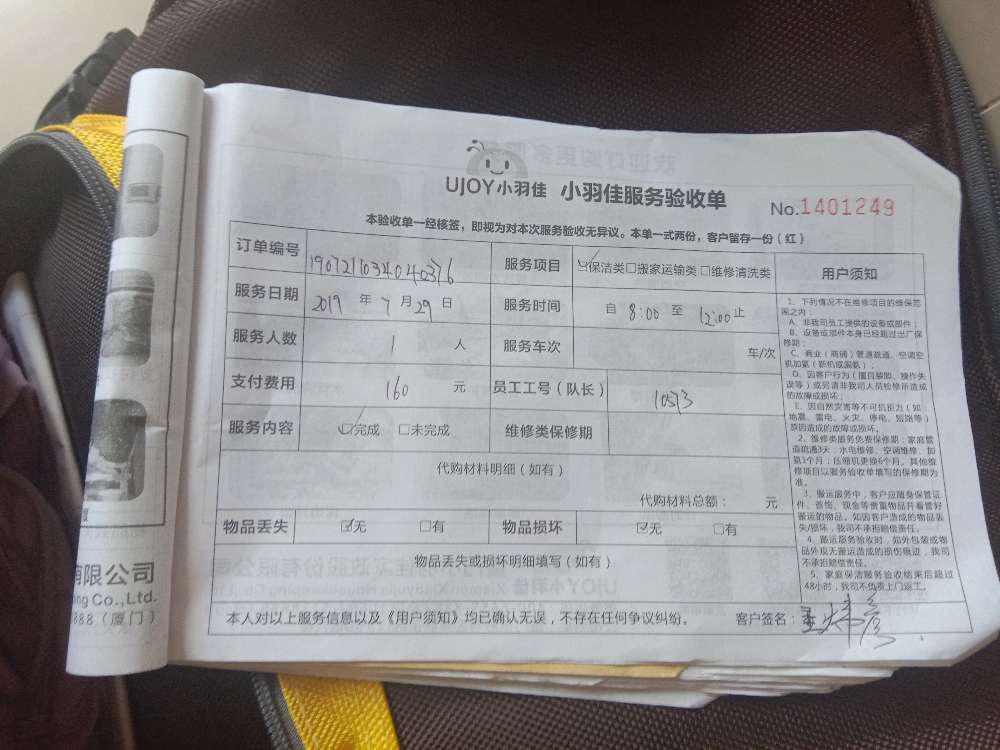 UJOY小羽佳 小羽佳服务验收单
No.1401249
本验收单一经核签，即视为对本次服务验收无异议。本单一式两份，客户留存一份（红）
订单编号 服务项目 保洁类 搬家运输类 维修清洗类
服务日期 2019 年 7 月 29 日 服务时间 自 8:00 至 12:00 止
服务人数 1 人 服务车次 车/次
支付费用 160 元 员工工号（队长） 10573
服务内容 完成 未完成 维修类保修期
代购材料明细（如有）
代购材料总额： 元
物品丢失 无 有 物品损坏 无 有
物品丢失或损坏明细填写（如有）
本人对以上服务信息以及《用户须知》均已确认无误，不存在任何争议纠纷。 客户签名：
用户须知
1、下列情况不在维修项目的维保范
围之内：
A、非我司员工提供的设备或部件；
B、设备或部件本身已经超过出厂保
修期；
C、商业（商铺）管道疏通、空调空
机加氨（新机或漏氨）；
D、因客户行为（擅自装卸、操作失
误等）或另请非我司人员检修所造成
的故障或损坏；
E、因自然灾害等不可抗拒力（如：
地震、雷电、火灾、停电、短路等）
原因造成的故障或损坏。
2、维修类服务免费保修期：家庭管
道疏通3天；水电维修、空调维修、加
氨1个月；压缩机更换6个月。其他维
修项目以服务验收单填写的保修期为
准。
3、搬运服务中，客户应随身保管证
件、首饰、现金等贵重物品并看管好
搬运的物品。如因客户造成的物品丢
失/损坏，我司不承担赔偿责任。
4、搬运服务验收时，如外包装或物
品外观无搬运造成的损伤痕迹，我司
不承担赔偿责任。
5、家庭保洁服务验收结束后超过
48小时，我司不负责上门返工。
有限公司
ng Co.,Ltd.
888（厦门）